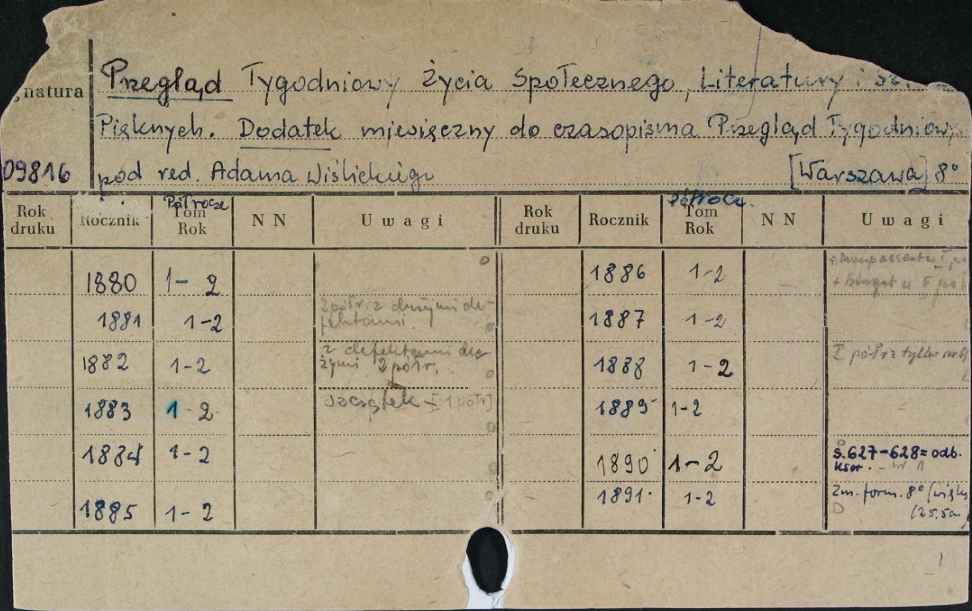 Przegląd Tygodniowy Życia Społecznego, Literatury i
natura
Pięknych. Dodatek miesięczny do czasopisma Przegląd Tygodniowy
09816 pod red. Adama Wiślickiego [Warszawa] 8°
Rok druku Rocznik Półrocze Tom Rok N N Uwagi Rok druku Rocznik Półrocz. Tom Rok N N Uwagi
1880 1-2 1886 1-2
1881 1-2 2 półr. z dużymi de-
fektami. 1887 1-2
1882 1-2 z defektami du-
żymi 2 półr. 1888 1-2 I półr z tylko
1883 1-2 1889 1-2
1884 1-2 1890 1-2 s. 627-628 = odb.
kser.
1885 1-2 1891. 1-2 Zm. form. 8°
(25,5cm